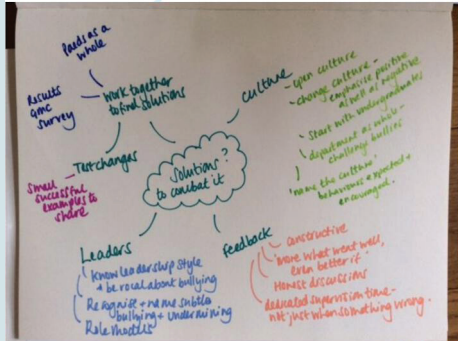 Paeds as a
whole
Results
GMC
survey
work together
to find solutions
Test changes
Small
successful
examples to
share
Solutions?
to combat it
CULTURE
open culture
change culture -
emphasise positive
as well as negative
Start with undergraduates
department as whole -
challenge bullies
'name the culture'
behaviours expected +
encouraged.
Leaders
Know leadership style
+ be vocal about bullying
Recognise + name subtle
bullying + undermining
Role models
feedback
constructive
'more what went well,
even better if'
Honest discussions
dedicated supervision time -
not 'just when something wrong.